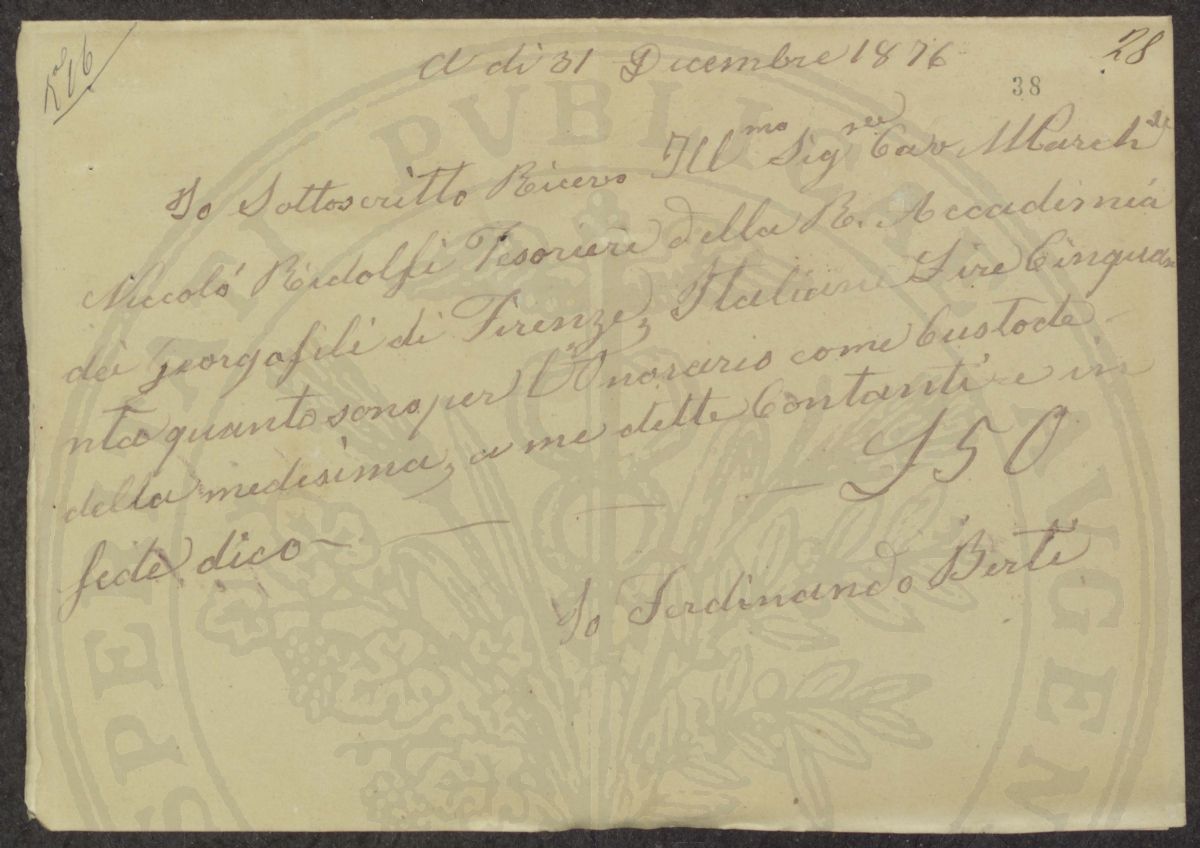 28
A dì 31 Dicembre 1876
38
Io Sottoscritto Ricevo Ill.mo Sig.re Cav. March.se
Niccoló Ridolfi Tesoriere della R. Accadiemia
dei georgofili di Firenze, Italiane Lire Cinqua=
nta quanto sono per l'Onorario come Custode
della medesima, a me dette Contanti e in
fede dico — £ 50
Io Ferdinando Berti